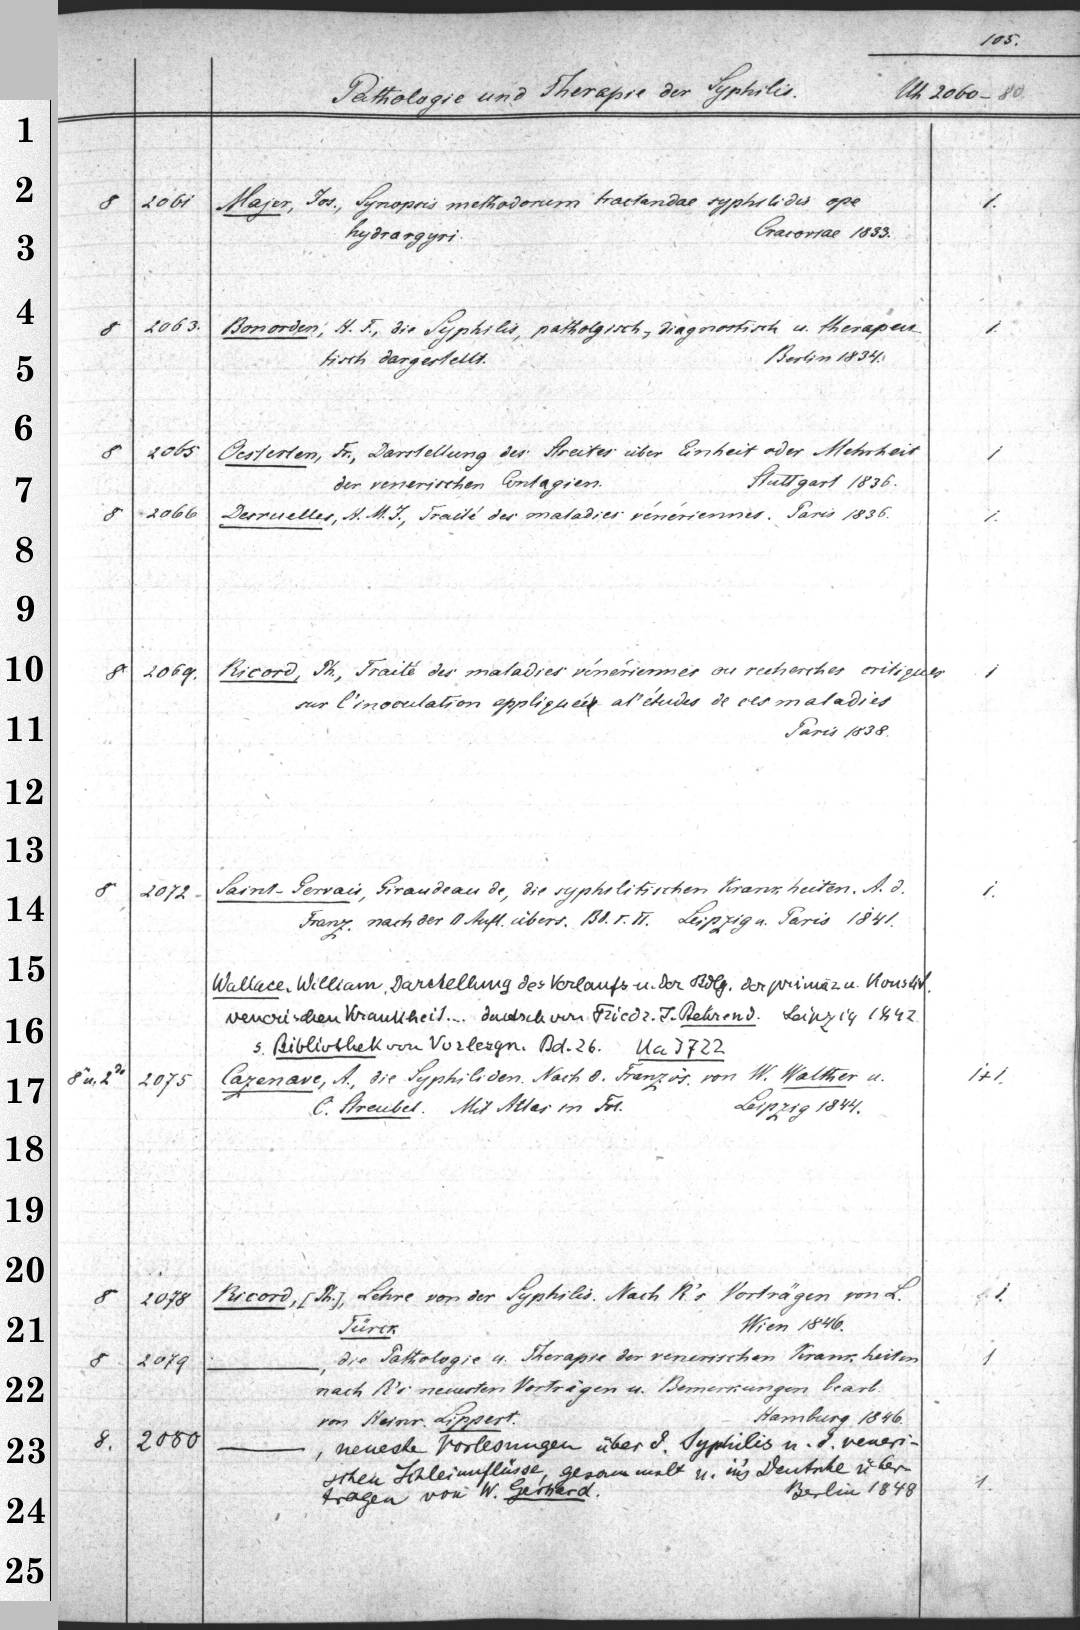 105.
Pathologie und Therapie der Syphilis. Uh 2060-80.
1
2
8 2061 Majer, Jos., Synopsis methodorum tractandae syphilidis ope 1.
3
hydrargyri. Cracoviae 1833.
4
8 2063. Bonorden, H. F., die Syphilis, patholgisch-, diagnostisch u. therapeu- 1.
5
tisch dargestellt. Berlin 1834.
6
8 2065 Oesterlen, Fr., Darstellung des Streites über Einheit oder Mehrheit 1
7
der venerischen Contagien. Stuttgart 1836.
8 2066 Desruelles, H. M. J., Traité des maladies vénériennes. Paris 1836. 1.
8
9
10
8 2069. Ricord, Ph., Traité des maladies vénériennes ou recherches critiques 1
sur l'inoculation appliquée al'études de ces maladies
11
Paris 1838.
12
13
8 2072 Saint-Gervais, Giraudeau de, die syphilitischen Krankheiten. A. d. 1.
14
Franz. nach der II Aufl. übers. Bd. I. II. Leipzig u. Paris 1841.
15
Wallace, William, Darstellung des Verlaufs u. der Bdlg. der primär u. Konstit.
16
venerischen Krankheit... deutsch von Friedr. J. Behrend. Leipzig 1842
s. Bibliothek von Vorlesgn. Bd. 26. Ua 3722
17
8° u. 2° 2075 Cazenave, A., die Syphiliden. Nach d. Französ. von W. Walther u. 1+1.
C. Streubel. Mit Atlas in Fol. Leipzig 1844.
18
19
20
8 2078 Ricord, [Ph.], Lehre von der Syphilis. Nach R's Vorträgen von L. 1.
21
Türck Wien 1846.
8 2079 ———, die Pathologie u. Therapie der venerischen Krankheiten 1
22
nach R's neuesten Vorträgen u. Bemerkungen bearb.
von Heinr. Lippert. Hamburg 1846.
23
8. 2080 ———, neueste Vorlesungen über d. Syphilis u. d. veneri-
schen Schleimflüsse, gesammelt u. ins Deutsche über-
24
tragen von W. Gerhard. Berlin 1848 1.
25